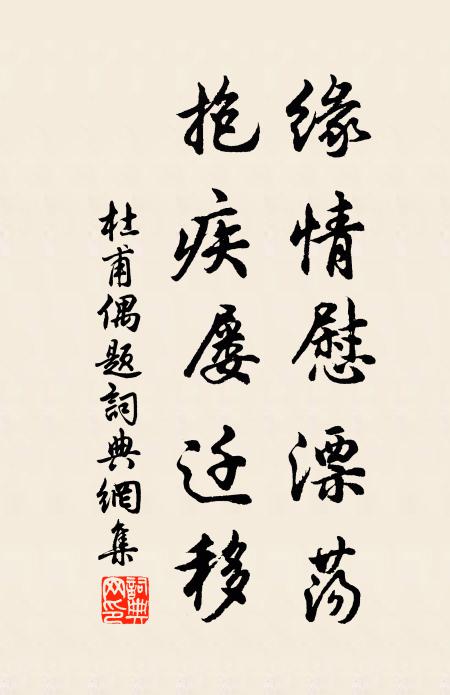 缘情慰漂荡
抱疾屡迁移
杜甫偶题詞典網集
詞典网印